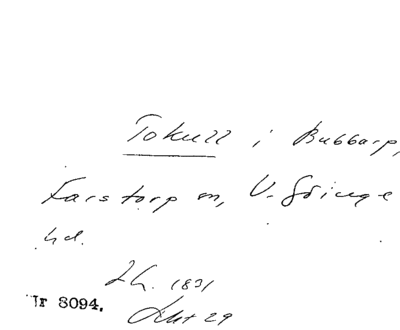 Tokull i Bubbarp,
Farstorp sn, V. Göinge
hd.
Lh. 1831
Nr 8094. Akt 29